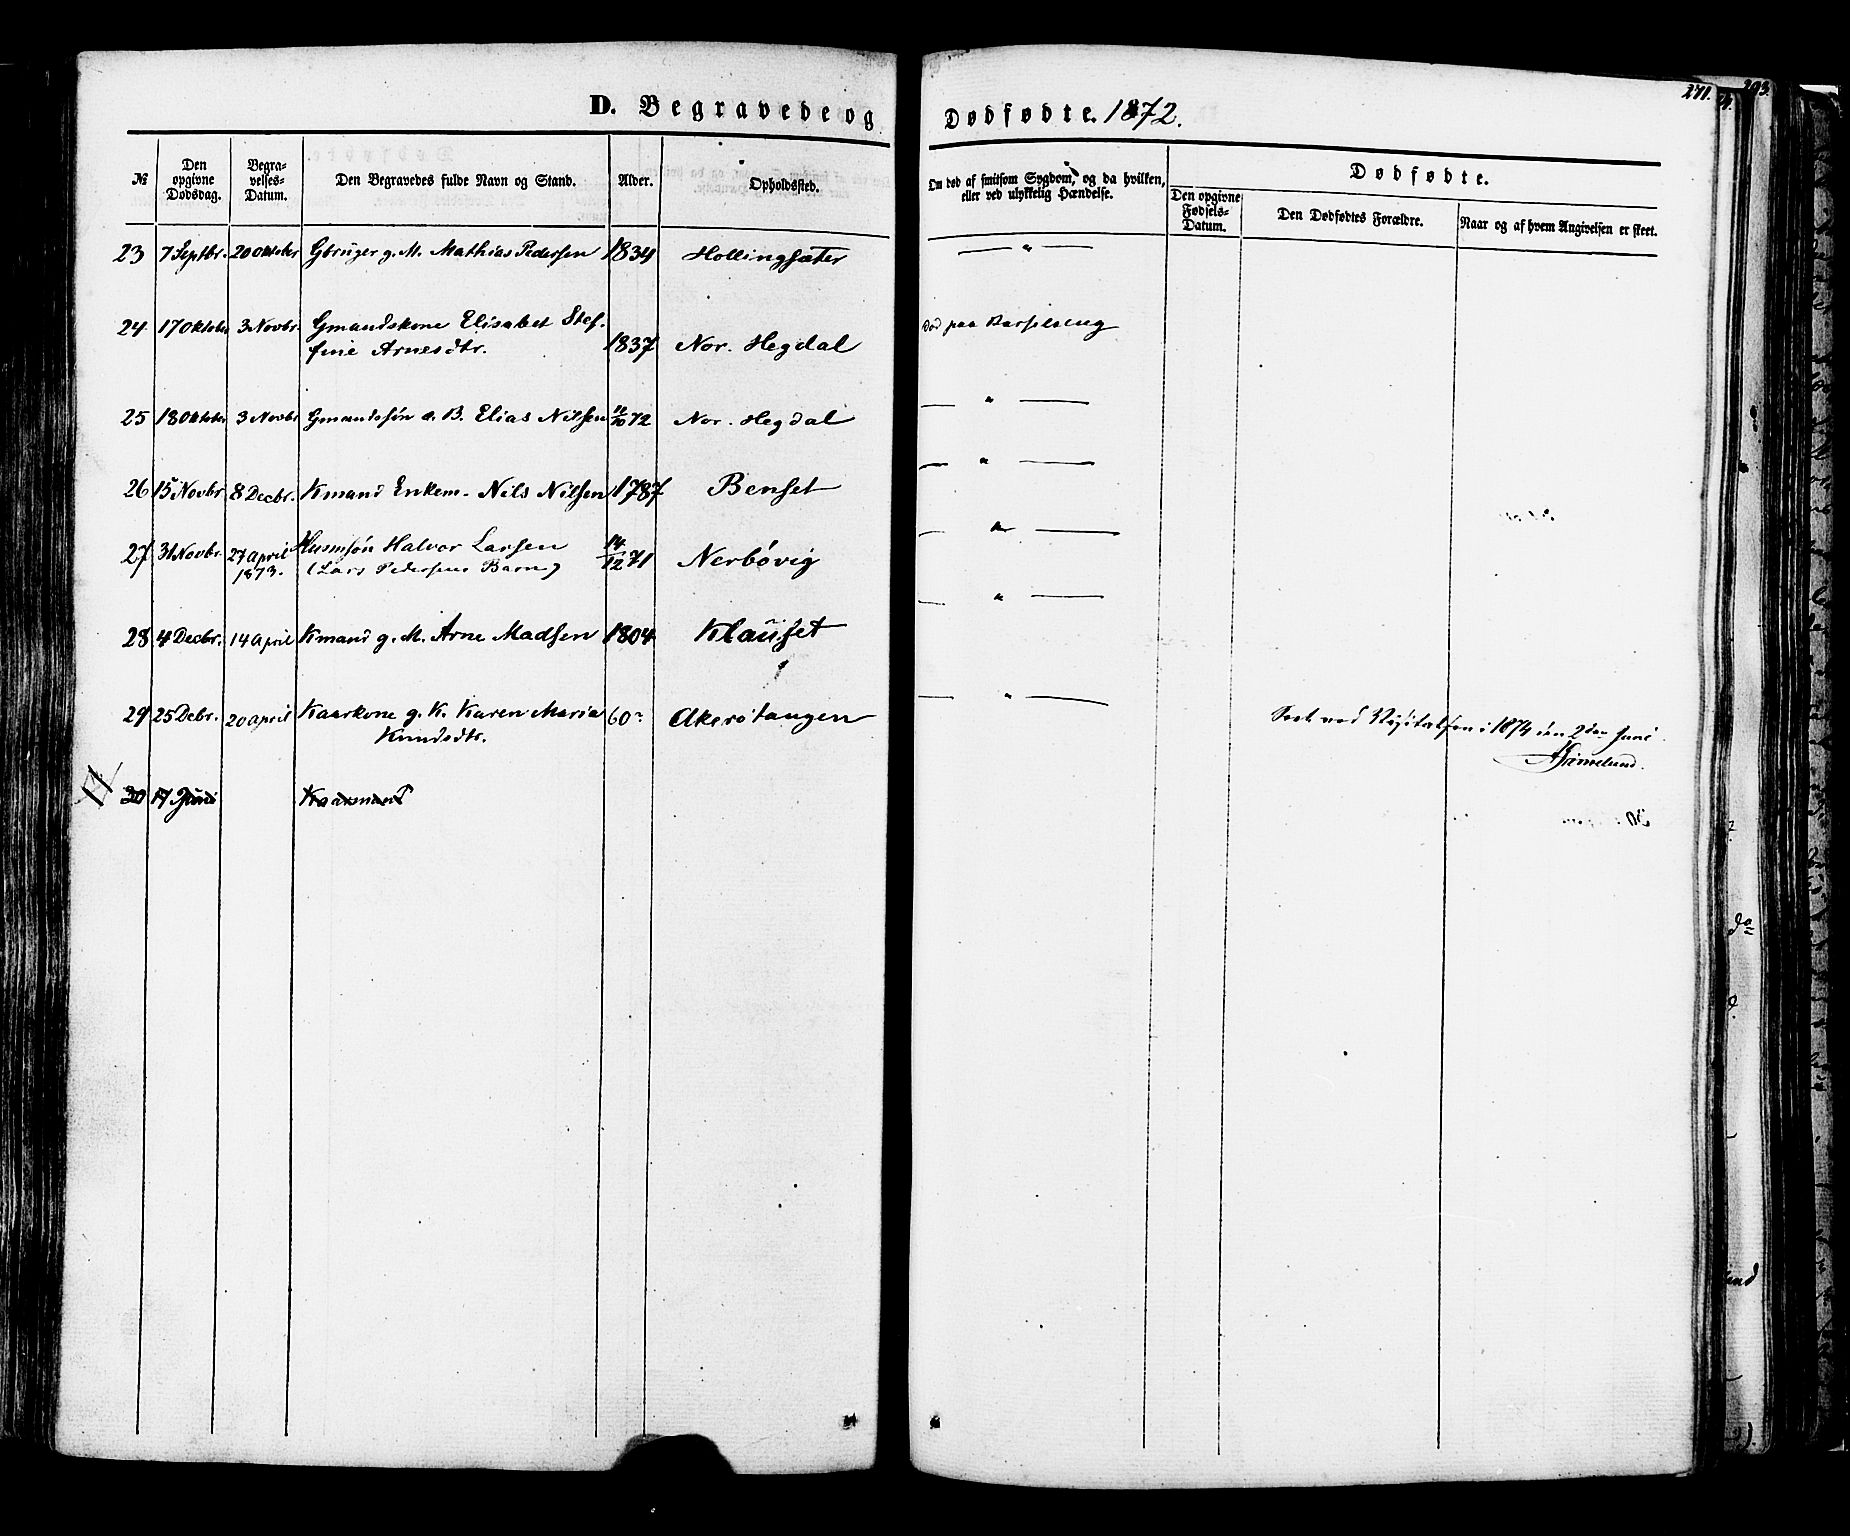 D. Begravede og Dødfødte. 1872.
271.
№ Den opgivne Dødsdag. Begravelses-Datum. Den Begravedes fulde Navn og Stand. Alder. Opholdssted. Om død af smitsom Sygdom, og da hvilken, eller ved ulykkelig Hændelse. Dødfødte.
Den opgivne Fødsels-Datum. Den Dødfødtes Forældre. Naar og af hvem Angivelsen er skeet.
23 7 Septbr. 20 Oktober Gbruger g. M. Mathias Pedersen 1834 Hollingsæter — " —
24 17 Oktober 3 Novbr. Gmandskone Elisabet Stef-
fine Arnesdtr. 1837 Nor. Hegdal død paa Barselseng
25 18 Oktober 3 Novbr Gmandssøn a. B. Elias Nilsen /10 72 Nor. Hegdal — " —
26 15 Novbr 8 Decbr. Kmand Enkem. Nils Nilsen 1787 Benset — " —
27 31 Novbr. 27 April 1873. Husmsøn Halvor Larsen
(Lars Pedersens Barn) 14/12 71 Nerbøvig — " —
28 4 Decbr. 14 April Kmand g. M. Arne Madsen 1804 Klauset — " —
29 25 Debr. 20 April Kaarkone g. K. Karen Maria
Knudsdtr. 60 Akerøtangen — " —
Seet ved Visitatsen i 1874 den 2den Juni
Grimelund.
30 17 Juni Kaarmand